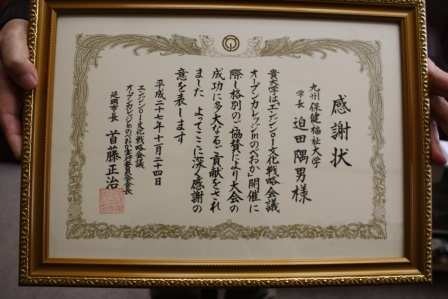 感謝状
九州保健福祉大学
学長 迫田隅男様
貴大学はエンジン01文化戦略会議
オープンカレッジinのべおか開催に
際し格別のご協賛により大会の
成功に多大なるご貢献をされ
ました よってここに深く感謝の
意を表します
平成二十七年十一月二十四日
エンジン01文化戦略会議
オープンカレッジinのべおか実行委員会会長
延岡市長 首藤正治